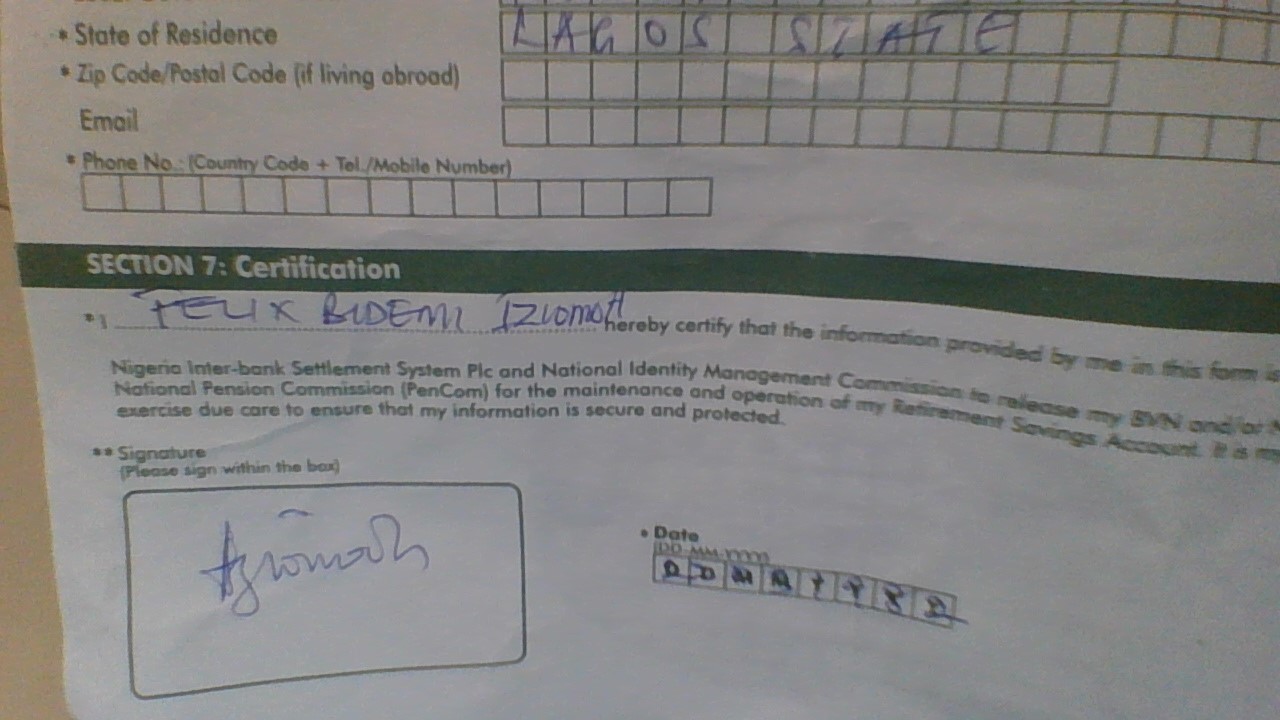 * State of Residence LAGOS STATE
* Zip Code/Postal Code (if living abroad)
Email
* Phone No.: (Country Code + Tel./Mobile Number)
SECTION 7: Certification
* I FELIX BIDEMI hereby certify that the information provided by me in this form is
Nigeria Inter-bank Settlement System Plc and National Identity Management Commission to release my BVN and/or
National Pension Commission (PenCom) for the maintenance and operation of my Retirement Savings Account. It is my
exercise due care to ensure that my information is secure and protected.
** Signature
(Please sign within the box)
* Date
DD-MM-YYYY